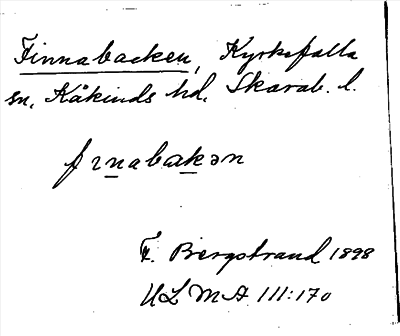 Finnabacken, Kyrkefalla
sn, Kåkinds hd, Skarab. l.
fɪnabakən
F. Bergstrand 1898
ULMA 111:170